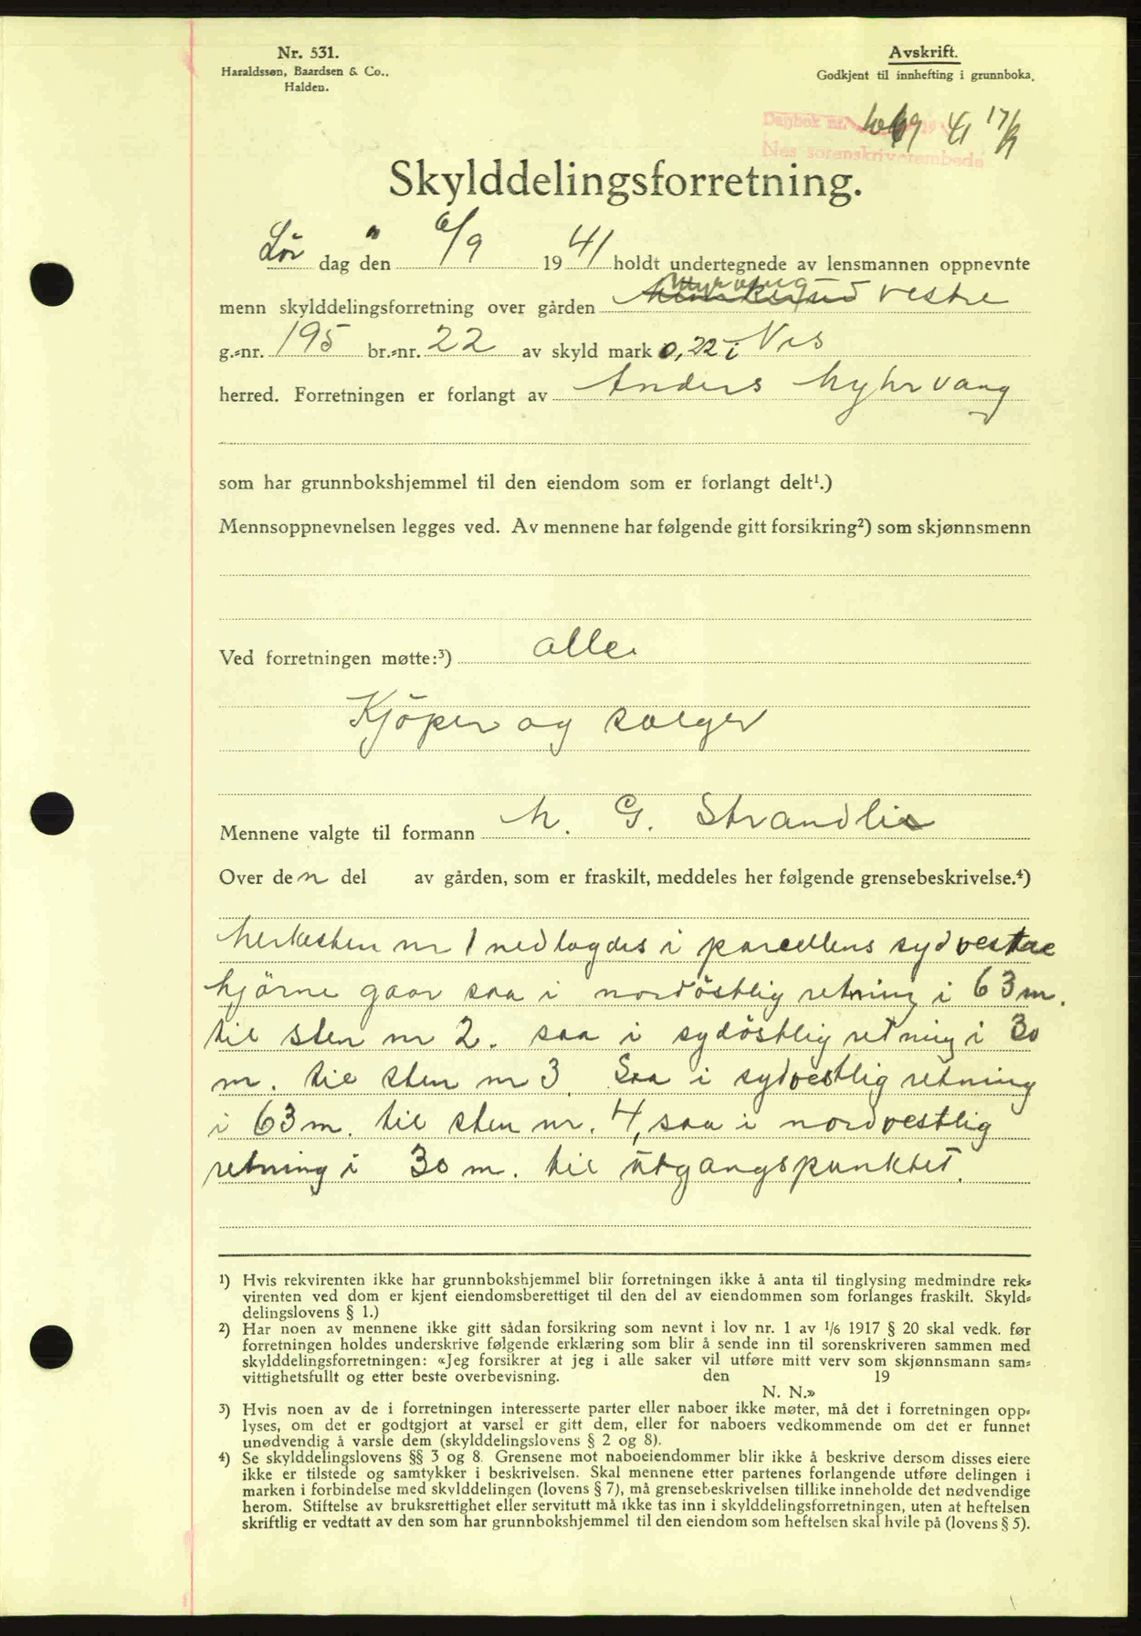 Nr. 531.
Haraldssøn, Baardsen & Co.,
Halden.
Avskrift.
Godkjent til innhefting i grunnboka.
Dagbok nr. 41 17/9
Nes sorenskriverembede
Skylddelingsforretning.
Lör dag den 6/9 1941 holdt undertegnede av lensmannen oppnevnte
menn skylddelingsforretning over gården Myrvang vestre
g.-nr. 195 br.-nr. 22 av skyld mark 0,22 i Nes
herred. Forretningen er forlangt av Anders Myhrvang
som har grunnbokshjemmel til den eiendom som er forlangt delt¹.)
Mennsoppnevnelsen legges ved. Av mennene har følgende gitt forsikring²) som skjønnsmenn
Ved forretningen møtte:³) alle.
Kjöper og sælger
Mennene valgte til formann M. G. Strandlie
Over den del av gården, som er fraskilt, meddeles her følgende grensebeskrivelse.⁴)
Merkesten nr 1 nedlagdes i parcellens sydvestre
hjörne gaar saa i nordöstlig retning i 63 m.
til sten nr 2. saa i sydöstlig retning i 30
m. til sten nr 3. Saa i sydvestlig retning
i 63 m. til sten nr. 4, saa i nordvestlig
retning i 30 m. til utgangspunktet.
¹) Hvis rekvirenten ikke har grunnbokshjemmel blir forretningen ikke å anta til tinglysing medmindre rek-
virenten ved dom er kjent eiendomsberettiget til den del av eiendommen som forlanges fraskilt. Skyld-
delingslovens § 1.)
²) Har noen av mennene ikke gitt sådan forsikring som nevnt i lov nr. 1 av 1/6 1917 § 20 skal vedk. før
forretningen holdes underskrive følgende erklæring som blir å sende inn til sorenskriveren sammen med
skylddelingsforretningen: «Jeg forsikrer at jeg i alle saker vil utføre mitt verv som skjønnsmann sam-
vittighetsfullt og etter beste overbevisning. den 19
N. N.»
³) Hvis noen av de i forretningen interesserte parter eller naboer ikke møter, må det i forretningen opp-
lyses, om det er godtgjort at varsel er gitt dem, eller for naboers vedkommende om det er funnet
unødvendig å varsle dem (skylddelingslovens § 2 og 8).
⁴) Se skylddelingslovens §§ 3 og 8. Grensene mot naboeiendommer blir ikke å beskrive dersom disses eiere
ikke er tilstede og samtykker i beskrivelsen. Skal mennene etter partenes forlangende utføre delingen i
marken i forbindelse med skylddelingen (lovens § 7), må grensebeskrivelsen tillike inneholde det nødvendige
herom. Stiftelse av bruksrettighet eller servitutt må ikke tas inn i skylddelingsforretningen, uten at heftelsen
skriftlig er vedtatt av den som har grunnbokshjemmel til den eiendom som heftelsen skal hvile på (lovens § 5).